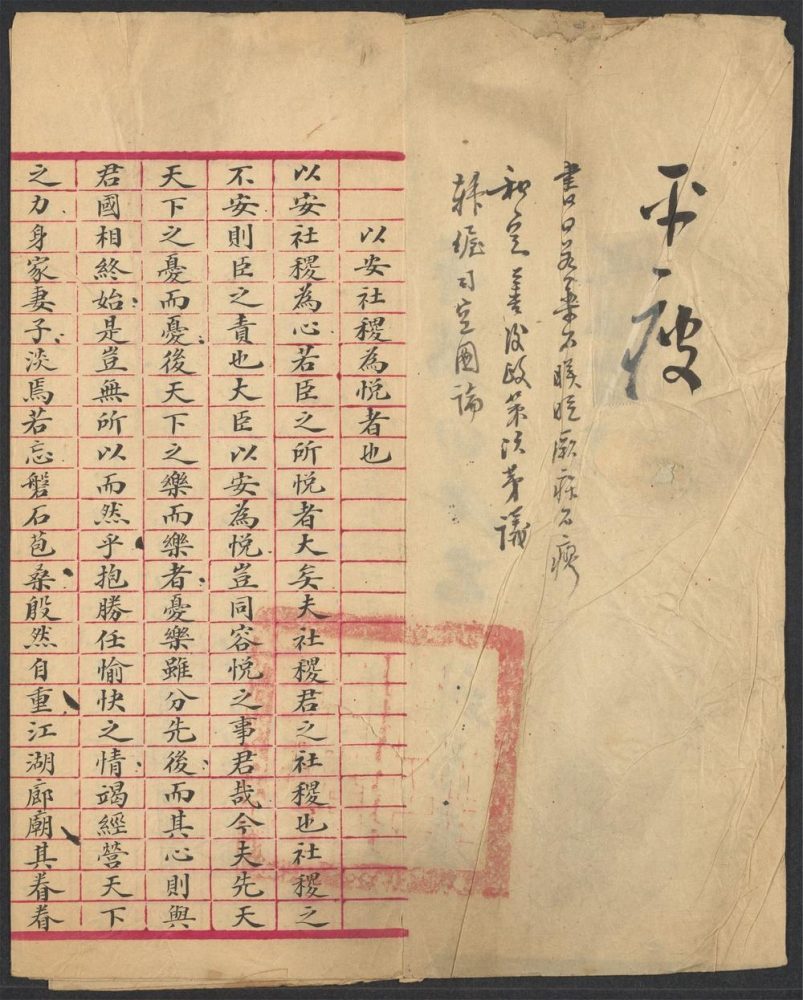 平疲
書曰若藥不瞑眩厥疾不瘳
和定善後政策議
韓偓司空圖論
以安社稷為悅者也
以安社稷為心若臣之所悅者大矣夫社稷君之社稷也社稷之
不安則臣之責也大臣以安為悅豈同容悅之事君哉今夫先天
天下之憂而憂後天下之樂而樂者憂樂雖分先後而其心則與
君國相終始是豈無所以而然乎抱勝任愉快之情竭經營天下
之力身家妻子淡焉若忘磐石苞桑殷然自重江湖廊廟其眷眷